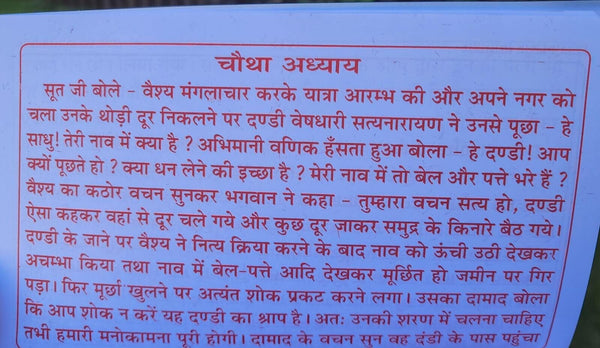 चौथा अध्याय
सूत जी बोले - वैश्य मंगलाचार करके यात्रा आरम्भ की और अपने नगर को
चला उनके थोड़ी दूर निकलने पर दण्डी वेषधारी सत्यनारायण ने उनसे पूछा - हे
साधु! तेरी नाव में क्या है ? अभिमानी वणिक हँसता हुआ बोला - हे दण्डी! आप
क्यों पूछते हो ? क्या धन लेने की इच्छा है ? मेरी नाव में तो बेल और पत्ते भरे हैं ?
वैश्य का कठोर वचन सुनकर भगवान ने कहा - तुम्हारा वचन सत्य हो, दण्डी
ऐसा कहकर वहां से दूर चले गये और कुछ दूर जाकर समुद्र के किनारे बैठ गये।
दण्डी के जाने पर वैश्य ने नित्य क्रिया करने के बाद नाव को ऊंची उठी देखकर
अचम्भा किया तथा नाव में बेल-पत्ते आदि देखकर मूर्छित हो जमीन पर गिर
पड़ा। फिर मूर्छा खुलने पर अत्यन्त शोक प्रकट करने लगा। उसका दामाद बोला
कि आप शोक न करें यह दण्डी का श्राप है। अतः उनकी शरण में चलना चाहिए
तभी हमारी मनोकामना पूरी होगी। दामाद के वचन सुन वह दंडी के पास पहुंचा